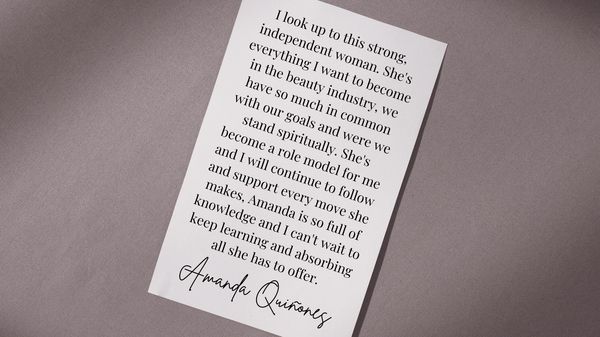 I look up to this strong,
independent woman. She's
everything I want to become
in the beauty industry, we
have so much in common
with our goals and were we
stand spiritually. She's
become a role model for me
and I will continue to follow
and support every move she
makes, Amanda is so full of
knowledge and I can't wait to
keep learning and absorbing
all she has to offer.
Amanda Quiñones